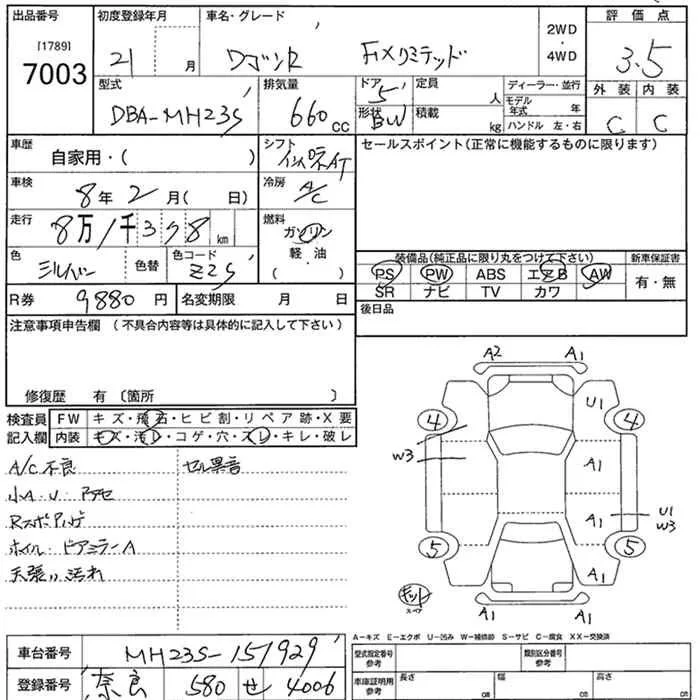 出品番号 初度登録年月 車名・グレード 2WD・4WD 評価点
[1789]
7003 21 月 ワゴンR FXリミテッド 3.5
型式 排気量 ドア 5 定員 人 ディーラー・並行 外装 内装
DBA-MH23S 660 CC 形状 BW 積載 kg モデル年式 年 C C
ハンドル 左・右
車歴 自家用・( ) シフト AT セールスポイント(正常に機能するものに限ります)
車検 8年 2月( 日) 冷房 A/C
走行 8万1千378km 燃料 ガソリン 軽・油 ( ・ )
装備品(純正品に限り丸をつけて下さい) 新車保証書
色 シルバー 色替 色コード Z2S PS PW ABS エアB AW 有・無
SR ナビ TV カワ
R券 9880円 名変期限 月 日 後日品
注意事項申告欄 (不具合内容等は具体的に記入して下さい)
修復歴 有 (箇所 )
検査員記入欄 FW キズ・飛石・ヒビ割・リペア跡・X要
内装 キズ・汚レ・コゲ・穴・スレ・キレ・破レ
A/C不良 セル異音
小A・U・
Rスポ
ホイル・ドアミラーA
天張り汚れ
A2 A1
U1
4 4
W3 A1
A1 U1
W3
5 5
A1
キット
スペア
A1 A1
A-キズ E-エクボ U-凹み W-補修跡 S-サビ C-腐食 XX-交換済
車台番号 MH23S-151929 型式指定番号 参考 類別区分番号 参考
登録番号 奈良 580 せ 4006 車庫証明用 参考 長さ cm 幅 cm 高さ cm